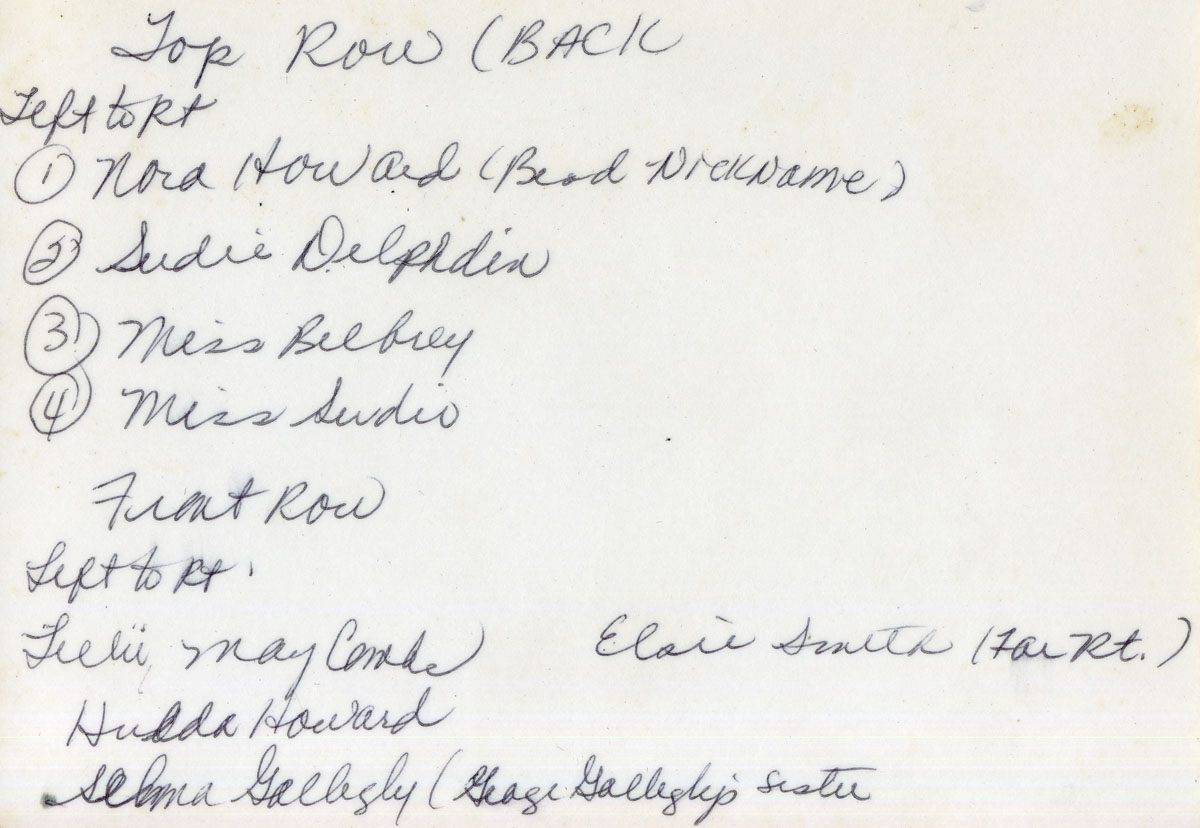 Top Row (BACK
Left to Rt
① Nora Howard (Bead NickName)
② Sudie
③ Miss Bilbrey
④ Miss Sudie
Front Row
Left to Rt.
Lillie May Combs
Elsie Smith (Far Rt.)
Hulda Howard
Selma Gallegly (George Gallegly's sister